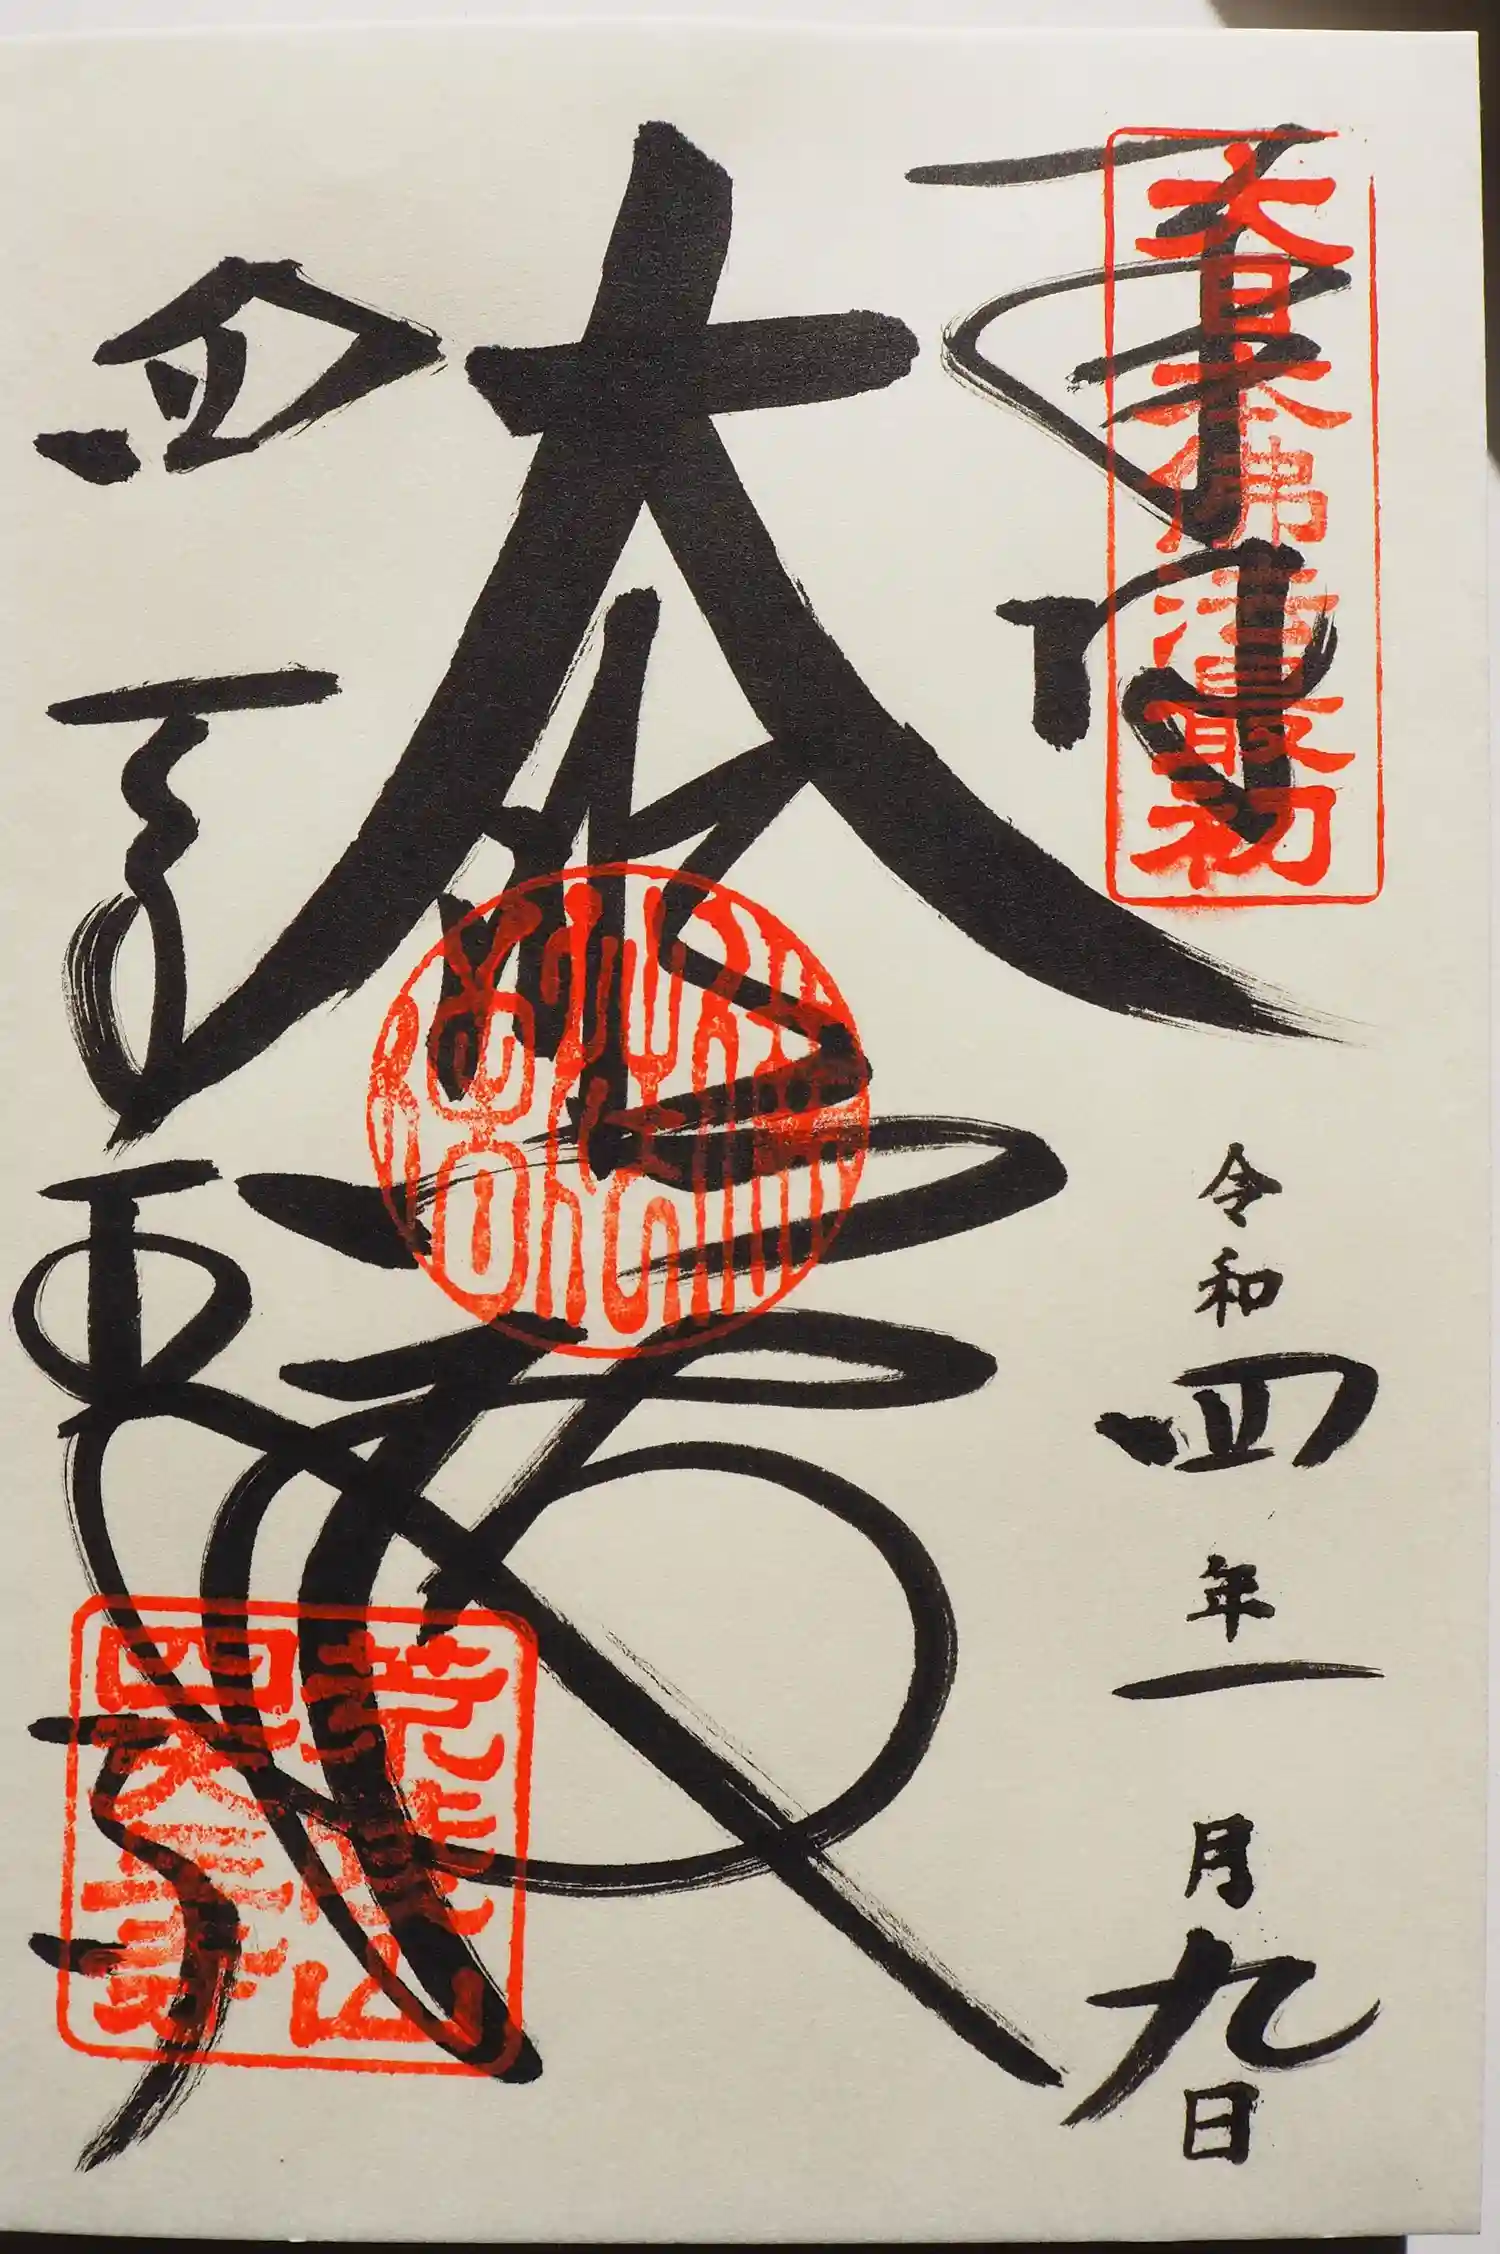 奉拝
大日本佛法最初
令和四年一月九日
大悲殿
四天王寺
荒陵山
四天王寺